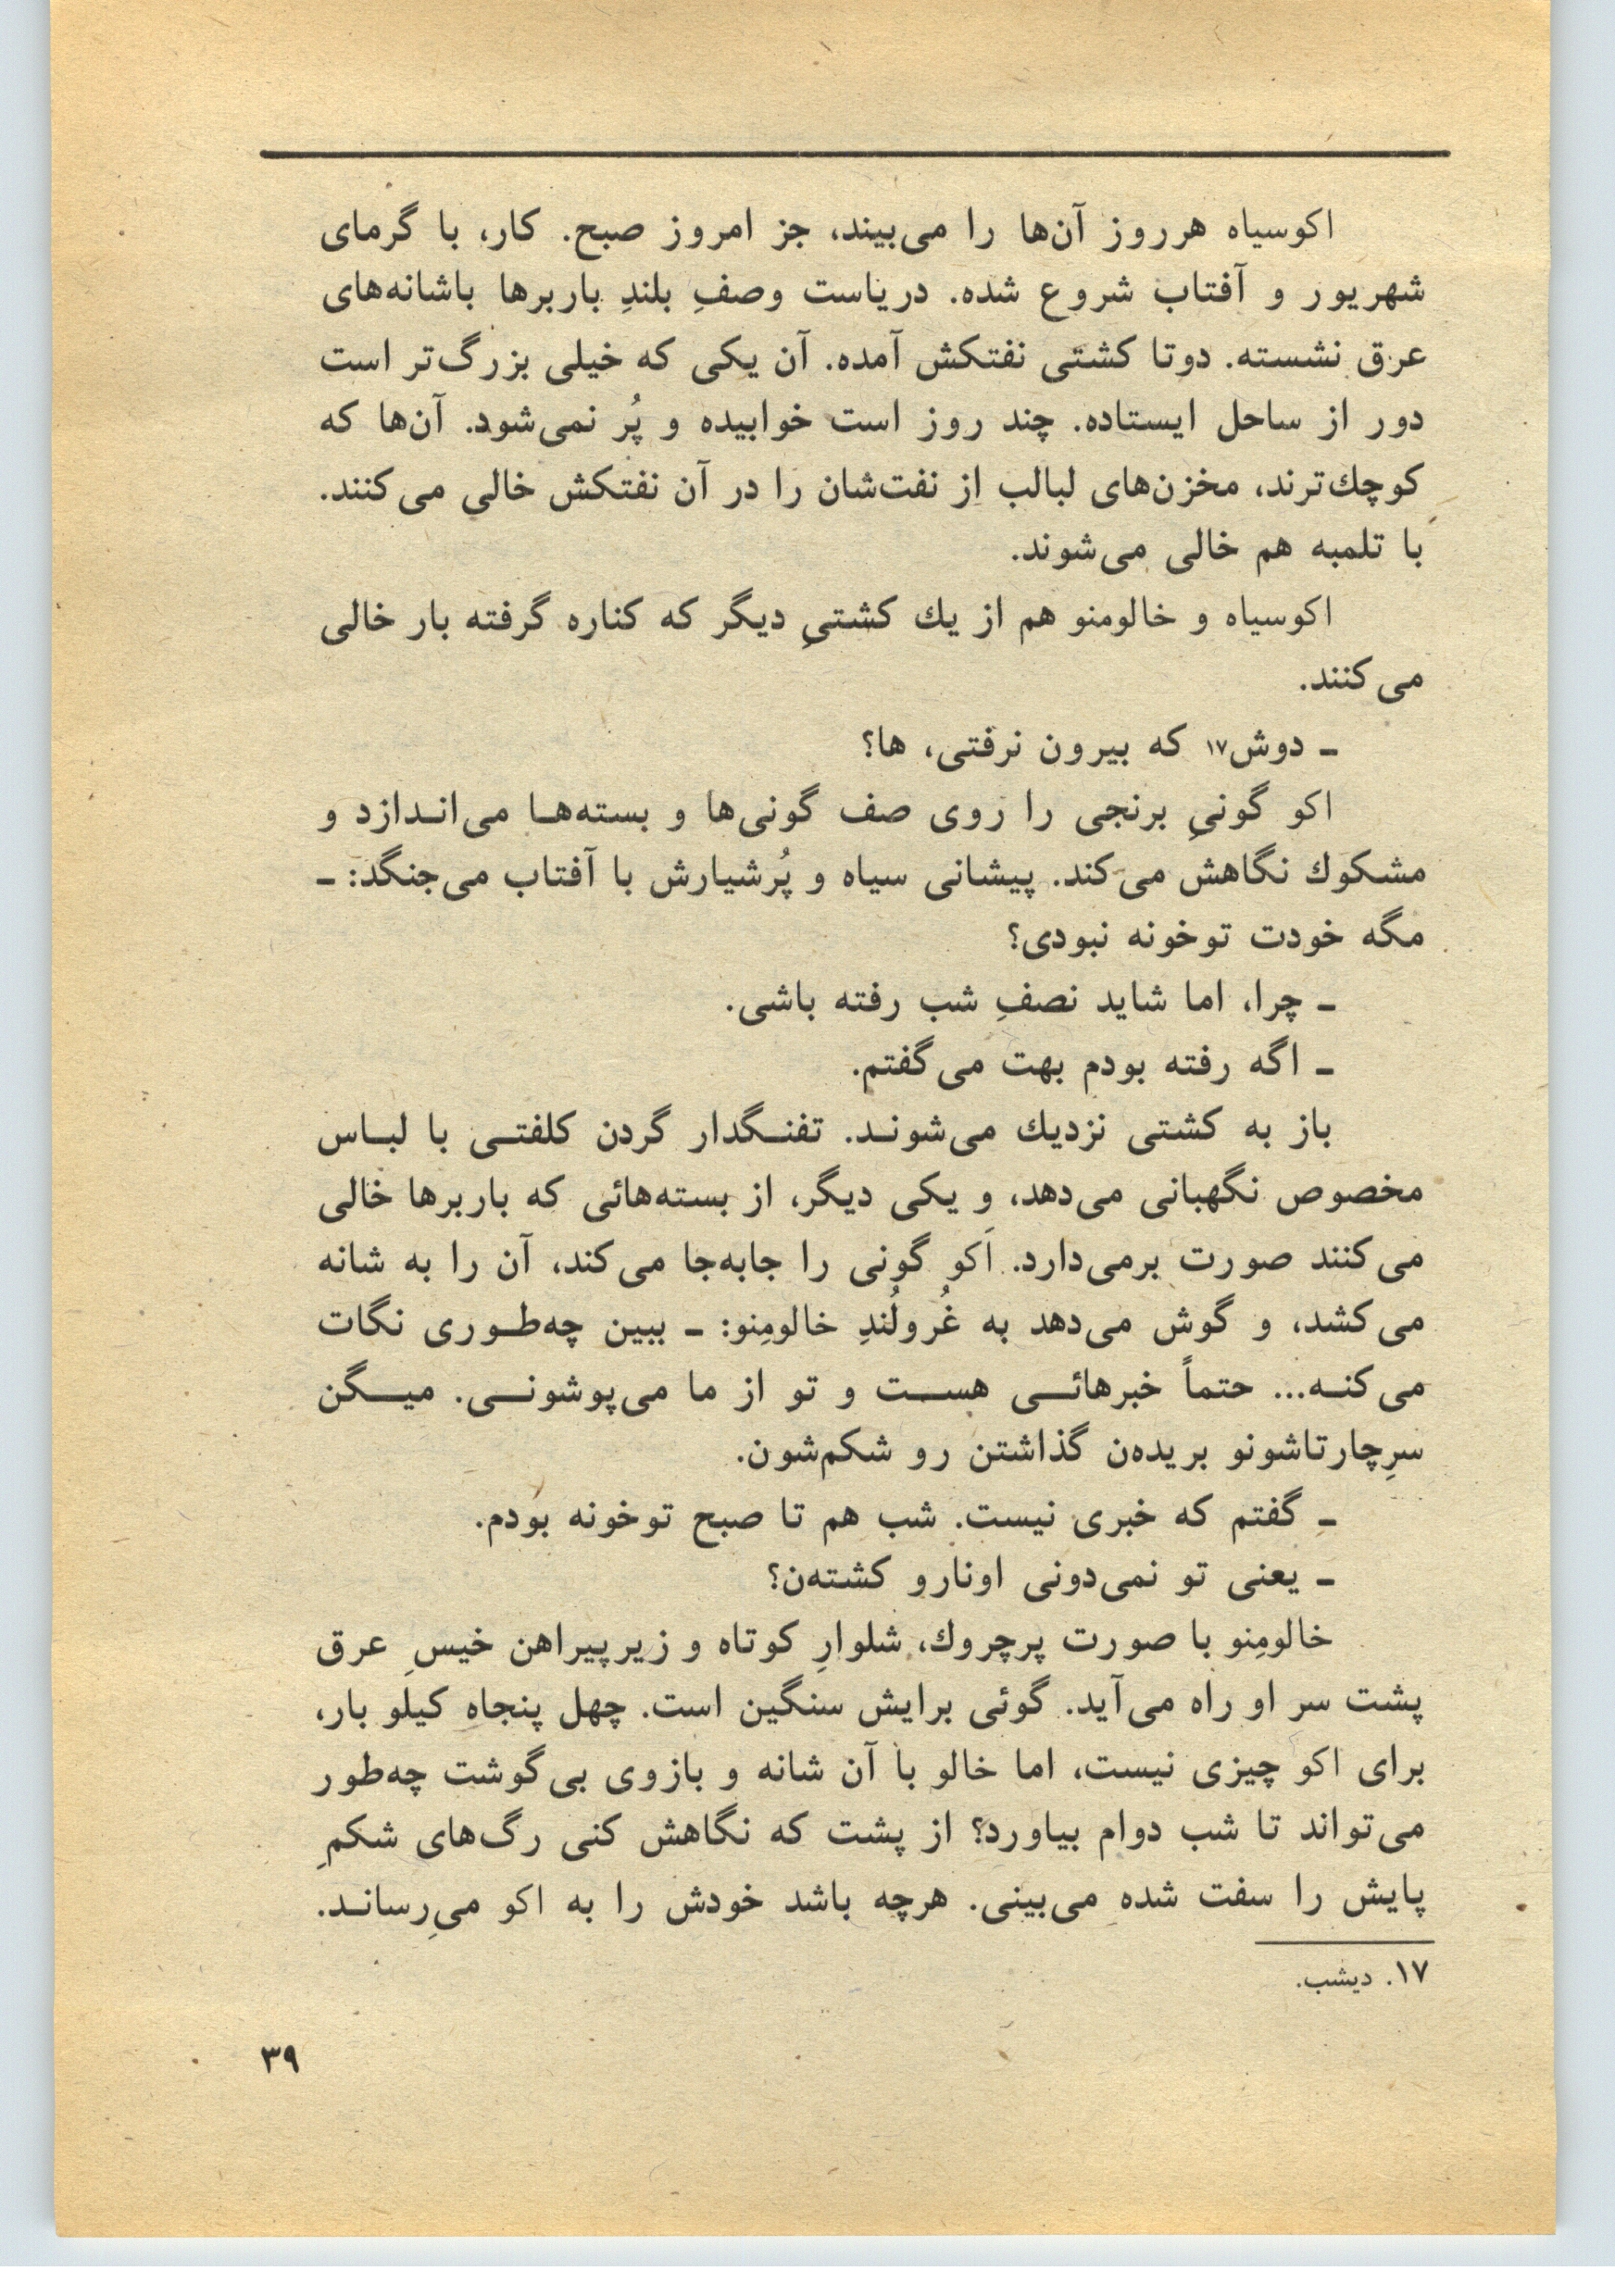 اکوسیاه هرروز آن‌ها را می‌بیند، جز امروز صبح. کار، با گرمای
شهریور و آفتاب شروع شده. دریاست وصفِ بلندِ باربرها باشانه‌های
عرق نشسته. دوتا کشتی نفتکش آمده. آن یکی که خیلی بزرگ‌تر است
دور از ساحل ایستاده. چند روز است خوابیده و پُر نمی‌شود. آن‌ها که
کوچك‌ترند، مخزن‌های لبالب از نفت‌شان را در آن نفتکش خالی می‌کنند.
با تلمبه هم خالی می‌شوند.
اکوسیاه و خالومنو هم از یك کشتیِ دیگر که کناره گرفته بار خالی
می‌کنند.
ـ دوش۱۷ که بیرون نرفتی، ها؟
اکو گونیِ برنجی را روی صف گونی‌ها و بسته‌هـا می‌انـدازد و
مشکوك نگاهش می‌کند. پیشانی سیاه و پُرشیارش با آفتاب می‌جنگد: ـ
مگه خودت توخونه نبودی؟
ـ چرا، اما شاید نصفِ شب رفته باشی.
ـ اگه رفته بودم بهت می‌گفتم.
باز به کشتی نزدیك می‌شونـد. تفنـگدار گردن کلفتـی با لبـاس
مخصوص نگهبانی می‌دهد، و یکی دیگر، از بسته‌هائی که باربرها خالی
می‌کنند صورت برمی‌دارد. اَکو گونی را جابه‌جا می‌کند، آن را به شانه
می‌کشد، و گوش می‌دهد به غُرولُندِ خالومِنو: ـ ببین چه‌طـوری نگات
می‌کنـه... حتماً خبرهائـی هسـت و تو از ما می‌پوشونـی. میـگن
سرِچارتاشونو بریده‌ن گذاشتن رو شکم‌شون.
ـ گفتم که خبری نیست. شب هم تا صبح توخونه بودم.
ـ یعنی تو نمی‌دونی اونارو کشته‌ن؟
خالومِنو با صورت پرچروك، شلوارِ کوتاه و زیرپیراهن خیسِ عرق
پشت سر او راه می‌آید. گوئی برایش سنگین است. چهل پنجاه کیلو بار،
برای اکو چیزی نیست، اما خالو با آن شانه و بازوی بی‌گوشت چه‌طور
می‌تواند تا شب دوام بیاورد؟ از پشت که نگاهش کنی رگ‌های شکمِ
پایش را سفت شده می‌بینی. هرچه باشد خودش را به اکو می‌رِسانـد.
۱۷. دیشب.
۳۹